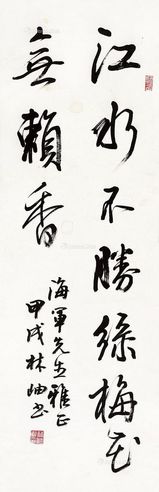 江水不勝綠梅花
無賴香
海軍先生雅正
甲戌林岫書